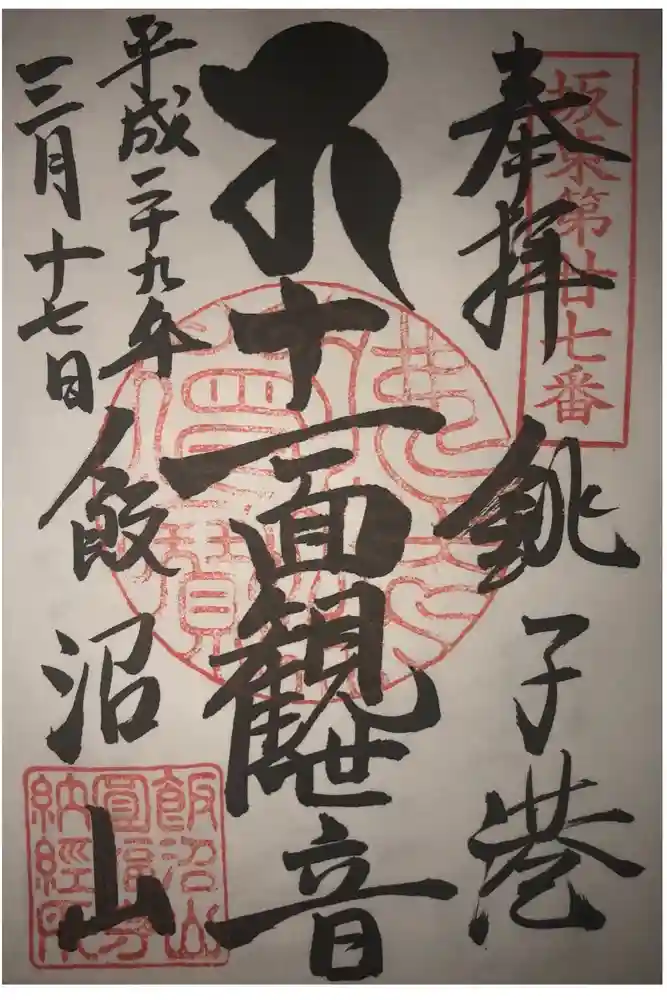 坂東第廿七番
奉拝
銚子港
十一面観世音
平成二十九年
三月十七日
飯沼山
飯沼山
圓福寺
納経所